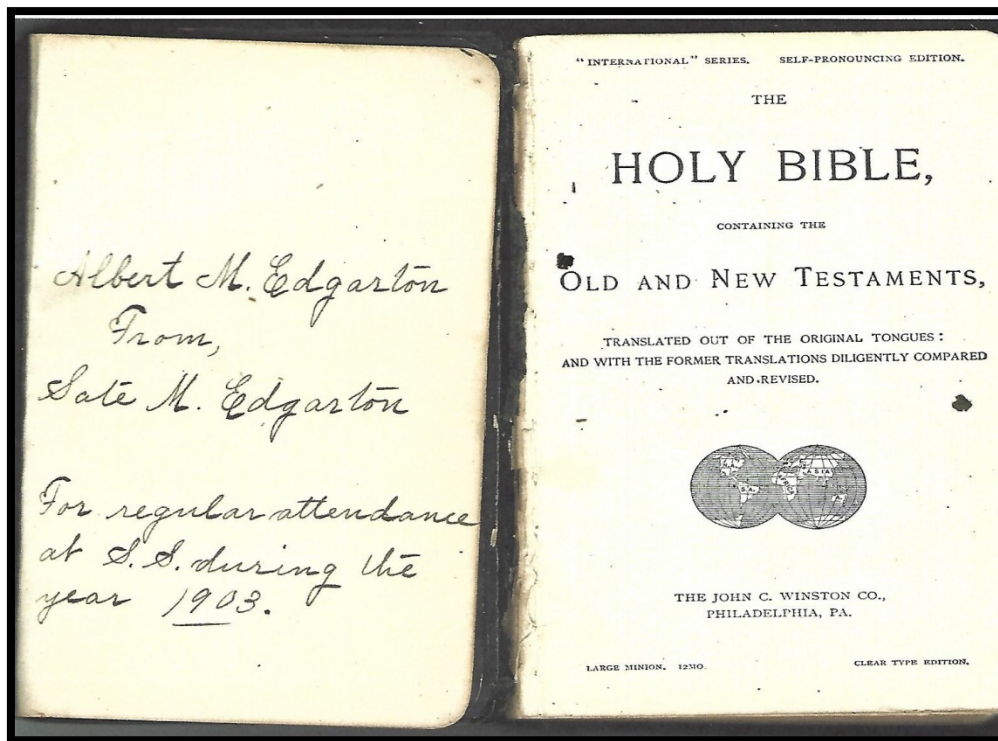 Albert M. Edgarton
From,
Sate M. Edgarton
For regular attendance
at S.S. during the
year 1903.
"INTERNATIONAL" SERIES. SELF-PRONOUNCING EDITION.
THE
HOLY BIBLE,
CONTAINING THE
OLD AND NEW TESTAMENTS,
TRANSLATED OUT OF THE ORIGINAL TONGUES:
AND WITH THE FORMER TRANSLATIONS DILIGENTLY COMPARED
AND REVISED.
N.A.
S.A.
AFRICA
ASIA
THE JOHN C. WINSTON CO.,
PHILADELPHIA, PA.
LARGE MINION. 12MO.
CLEAR TYPE EDITION.